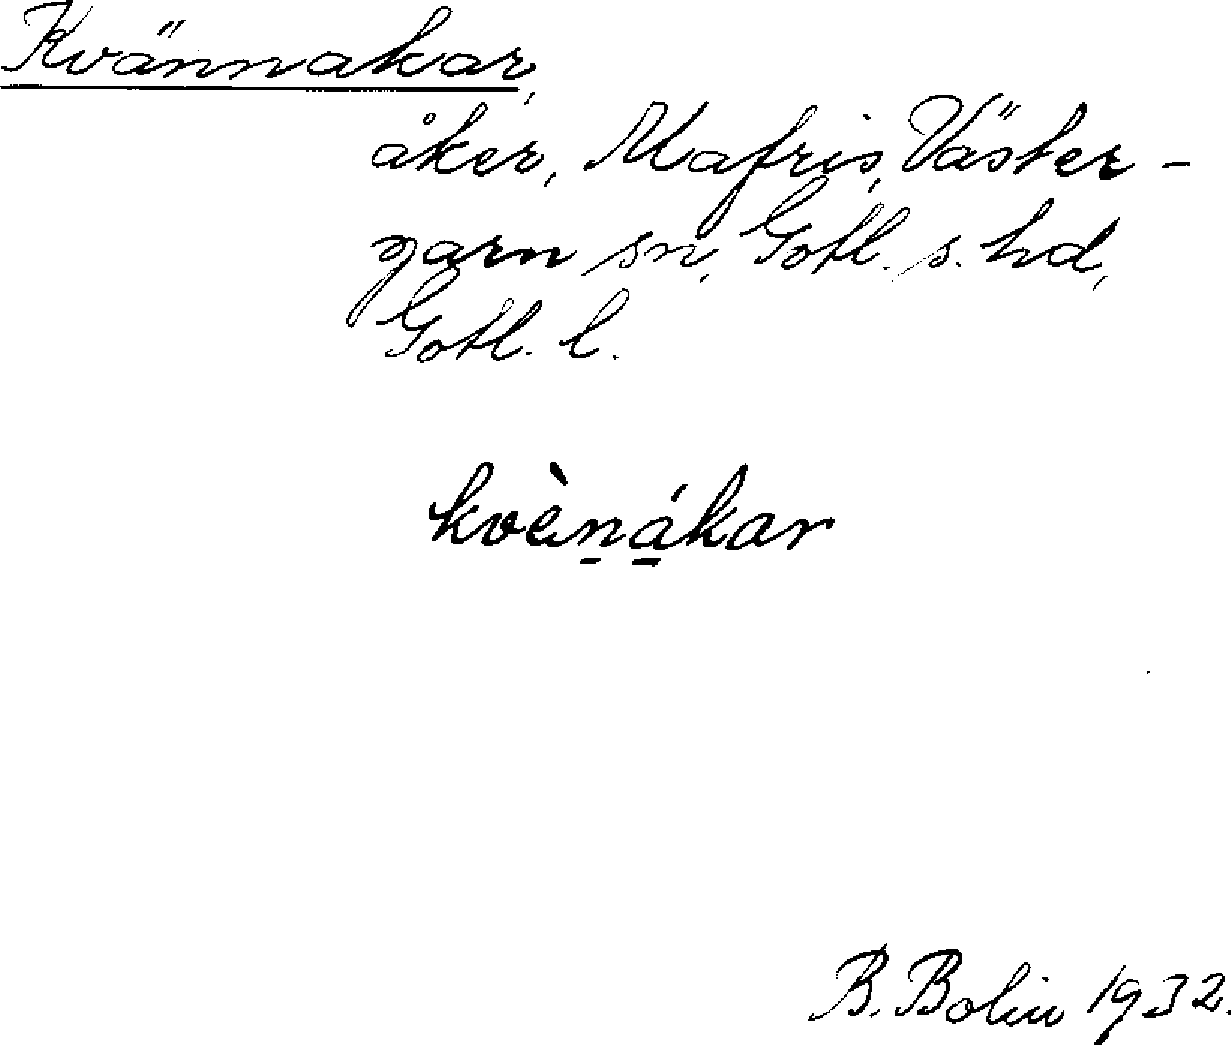 Kvännakar,
åker, Mafris, Väster-
garn sn, Gotl. s. hd,
Gotl. l.
kvèn̲á̲kar
B. Bolin 1932.